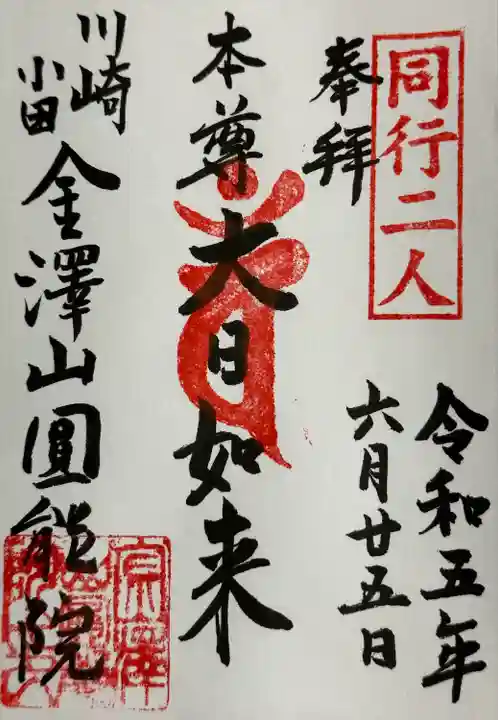 同行二人
奉拝
令和五年
六月廿五日
本尊大日如来
川崎
小田
金澤山圓能院